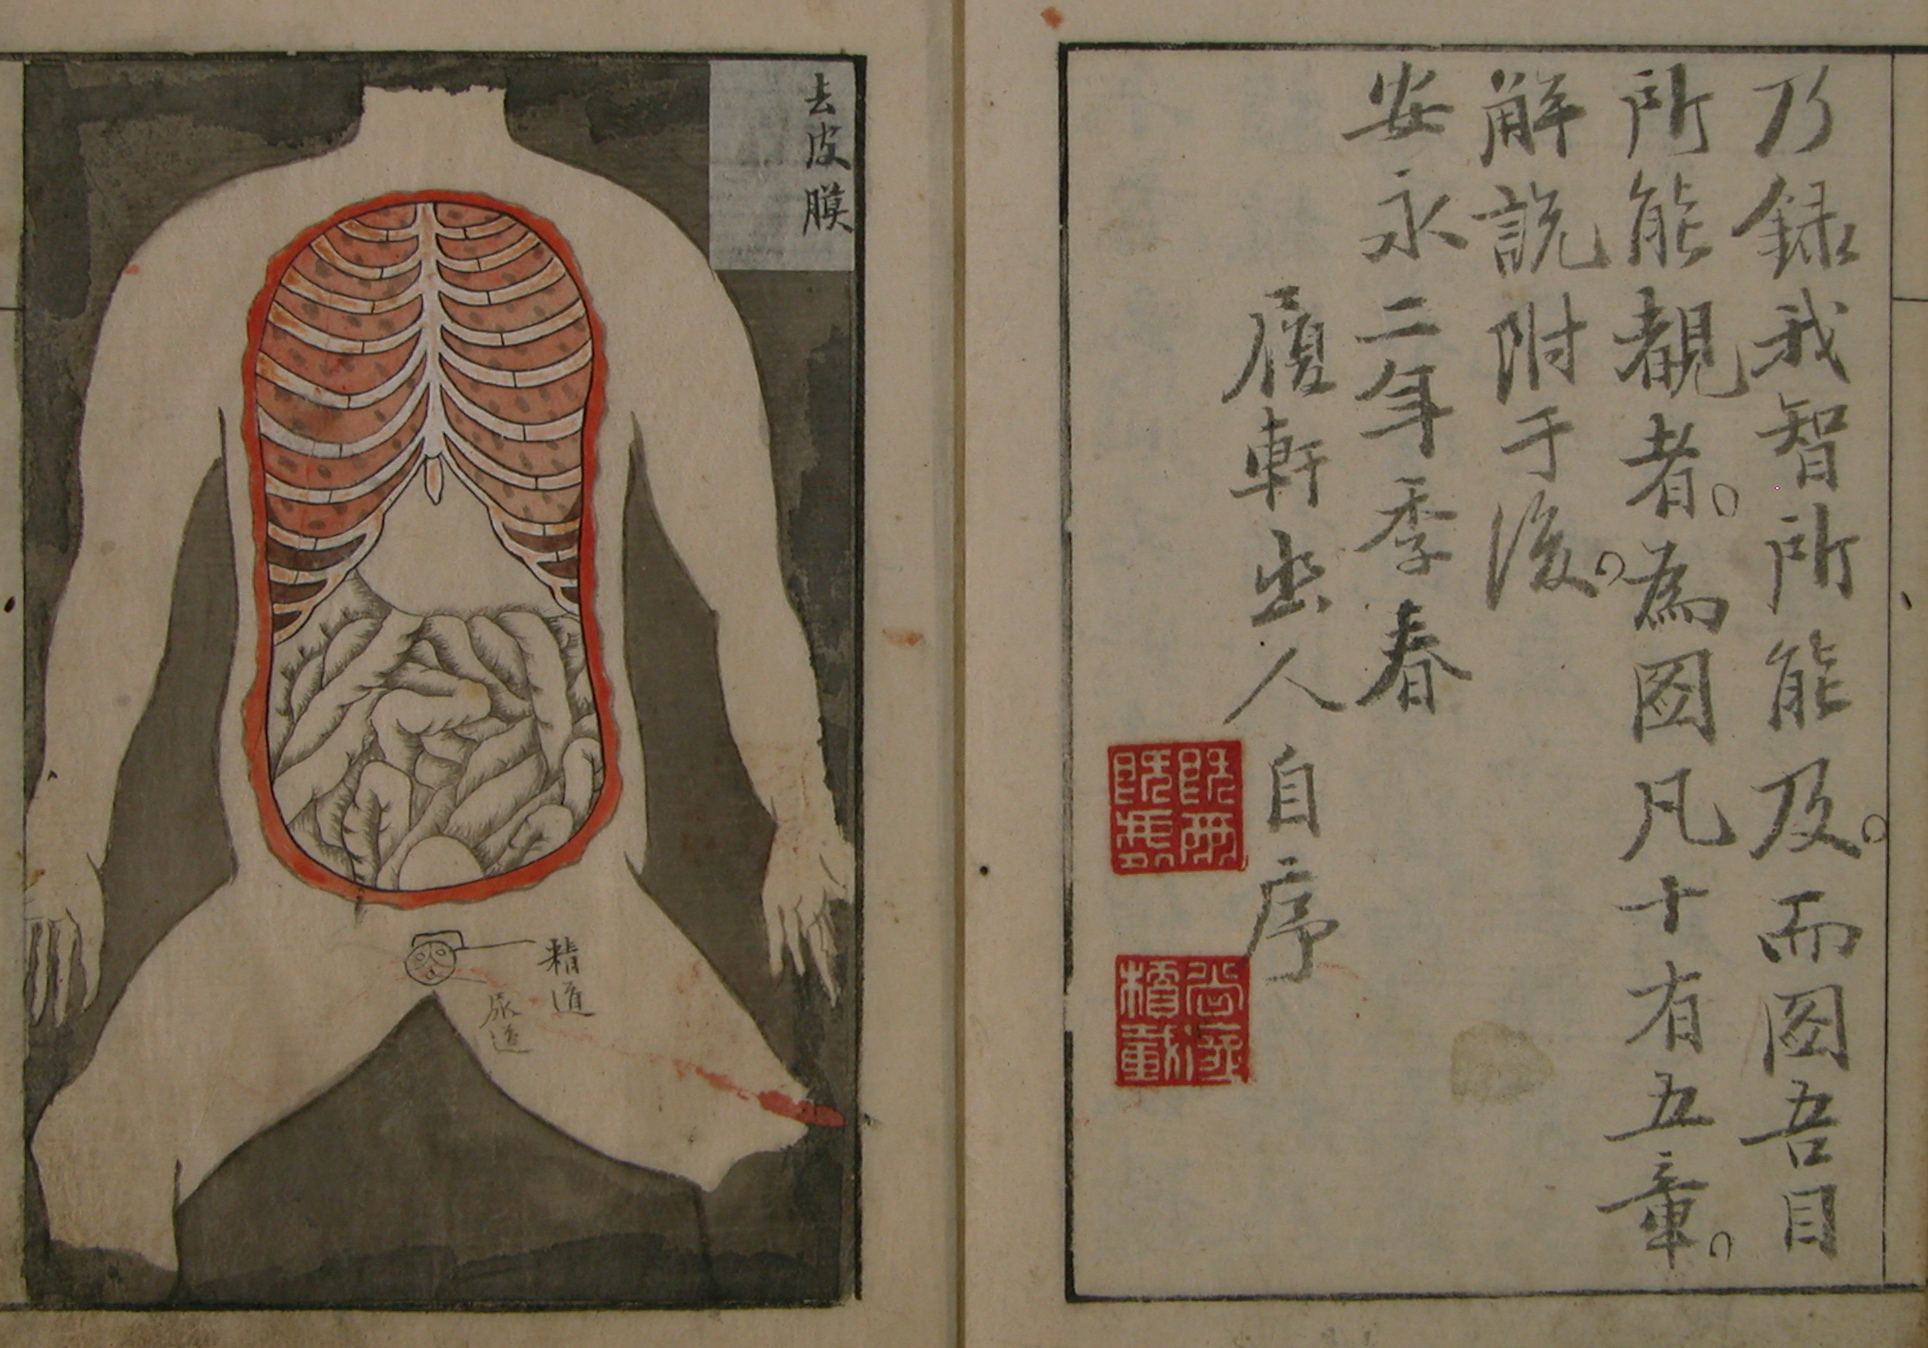 乃録我智所能及。而圖吾目
所能覩者。為圖凡十有五章。
解説附于後。
安永二年季春
履軒幽人自序
去皮膜
精道
尿道